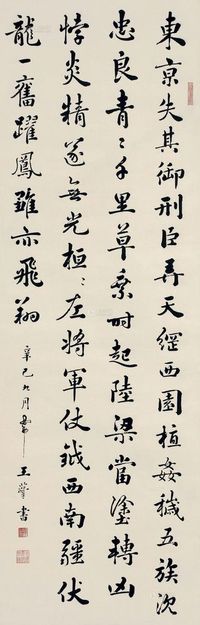 東京失其御刑臣弄天綱西園植姦穢五族沈
忠良青青千里草乘時起陸梁當塗轉凶
悖炎精遂無光桓桓左將軍仗鉞西南疆伏
龍一奮躍鳳雛亦飛翔
辛巳九月
王 書